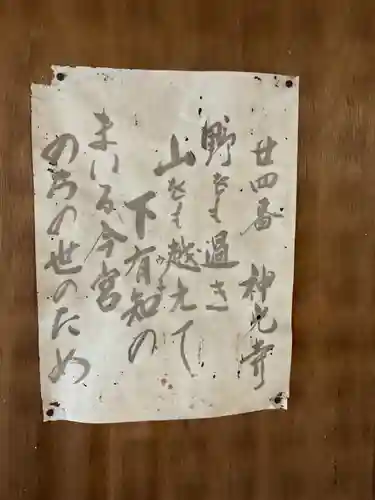 廿四番 神光寺
野をも過き
山をも越えて
下有知の
まいる今宮
のちの世のため